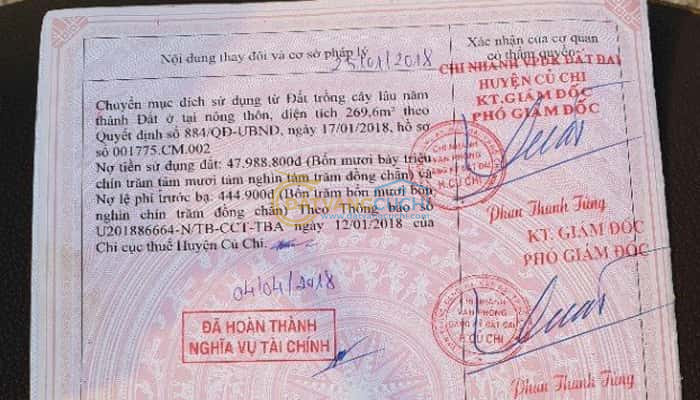 Nội dung thay đổi và cơ sở pháp lý
Xác nhận của cơ quan
có thẩm quyền
25/01/2018
CHI NHÁNH VPĐK ĐẤT ĐAI
HUYỆN CỦ CHI
KT.GIÁM ĐỐC
PHÓ GIÁM ĐỐC
Chuyển mục đích sử dụng từ Đất trồng cây lâu năm
thành Đất ở tại nông thôn, diện tích 269,6m² theo
Quyết định số 884/QĐ-UBND, ngày 17/01/2018, hồ sơ
số 001775.CM.002
Nợ tiền sử dụng đất: 47.988.800đ (Bốn mươi bảy triệu
chín trăm tám mươi tám nghìn tám trăm đồng chẵn) và
Nợ lệ phí trước bạ: 444.900đ (Bốn trăm bốn mươi bốn
nghìn chín trăm đồng chẵn) Theo Thông báo số
U201886664-N/TB-CCT-TBA ngày 12/01/2018 của
Chi cục thuế Huyện Củ Chi.
CHI NHÁNH
VĂN PHÒNG
ĐĂNG KÝ ĐẤT ĐAI
H.CỦ CHI
Phan Thanh Tùng
KT. GIÁM ĐỐC
PHÓ GIÁM ĐỐC
04/04/2018
ĐÃ HOÀN THÀNH
NGHĨA VỤ TÀI CHÍNH
CHI NHÁNH
VĂN PHÒNG
ĐĂNG KÝ ĐẤT ĐAI
H.CỦ CHI
Phan Thanh Tùng